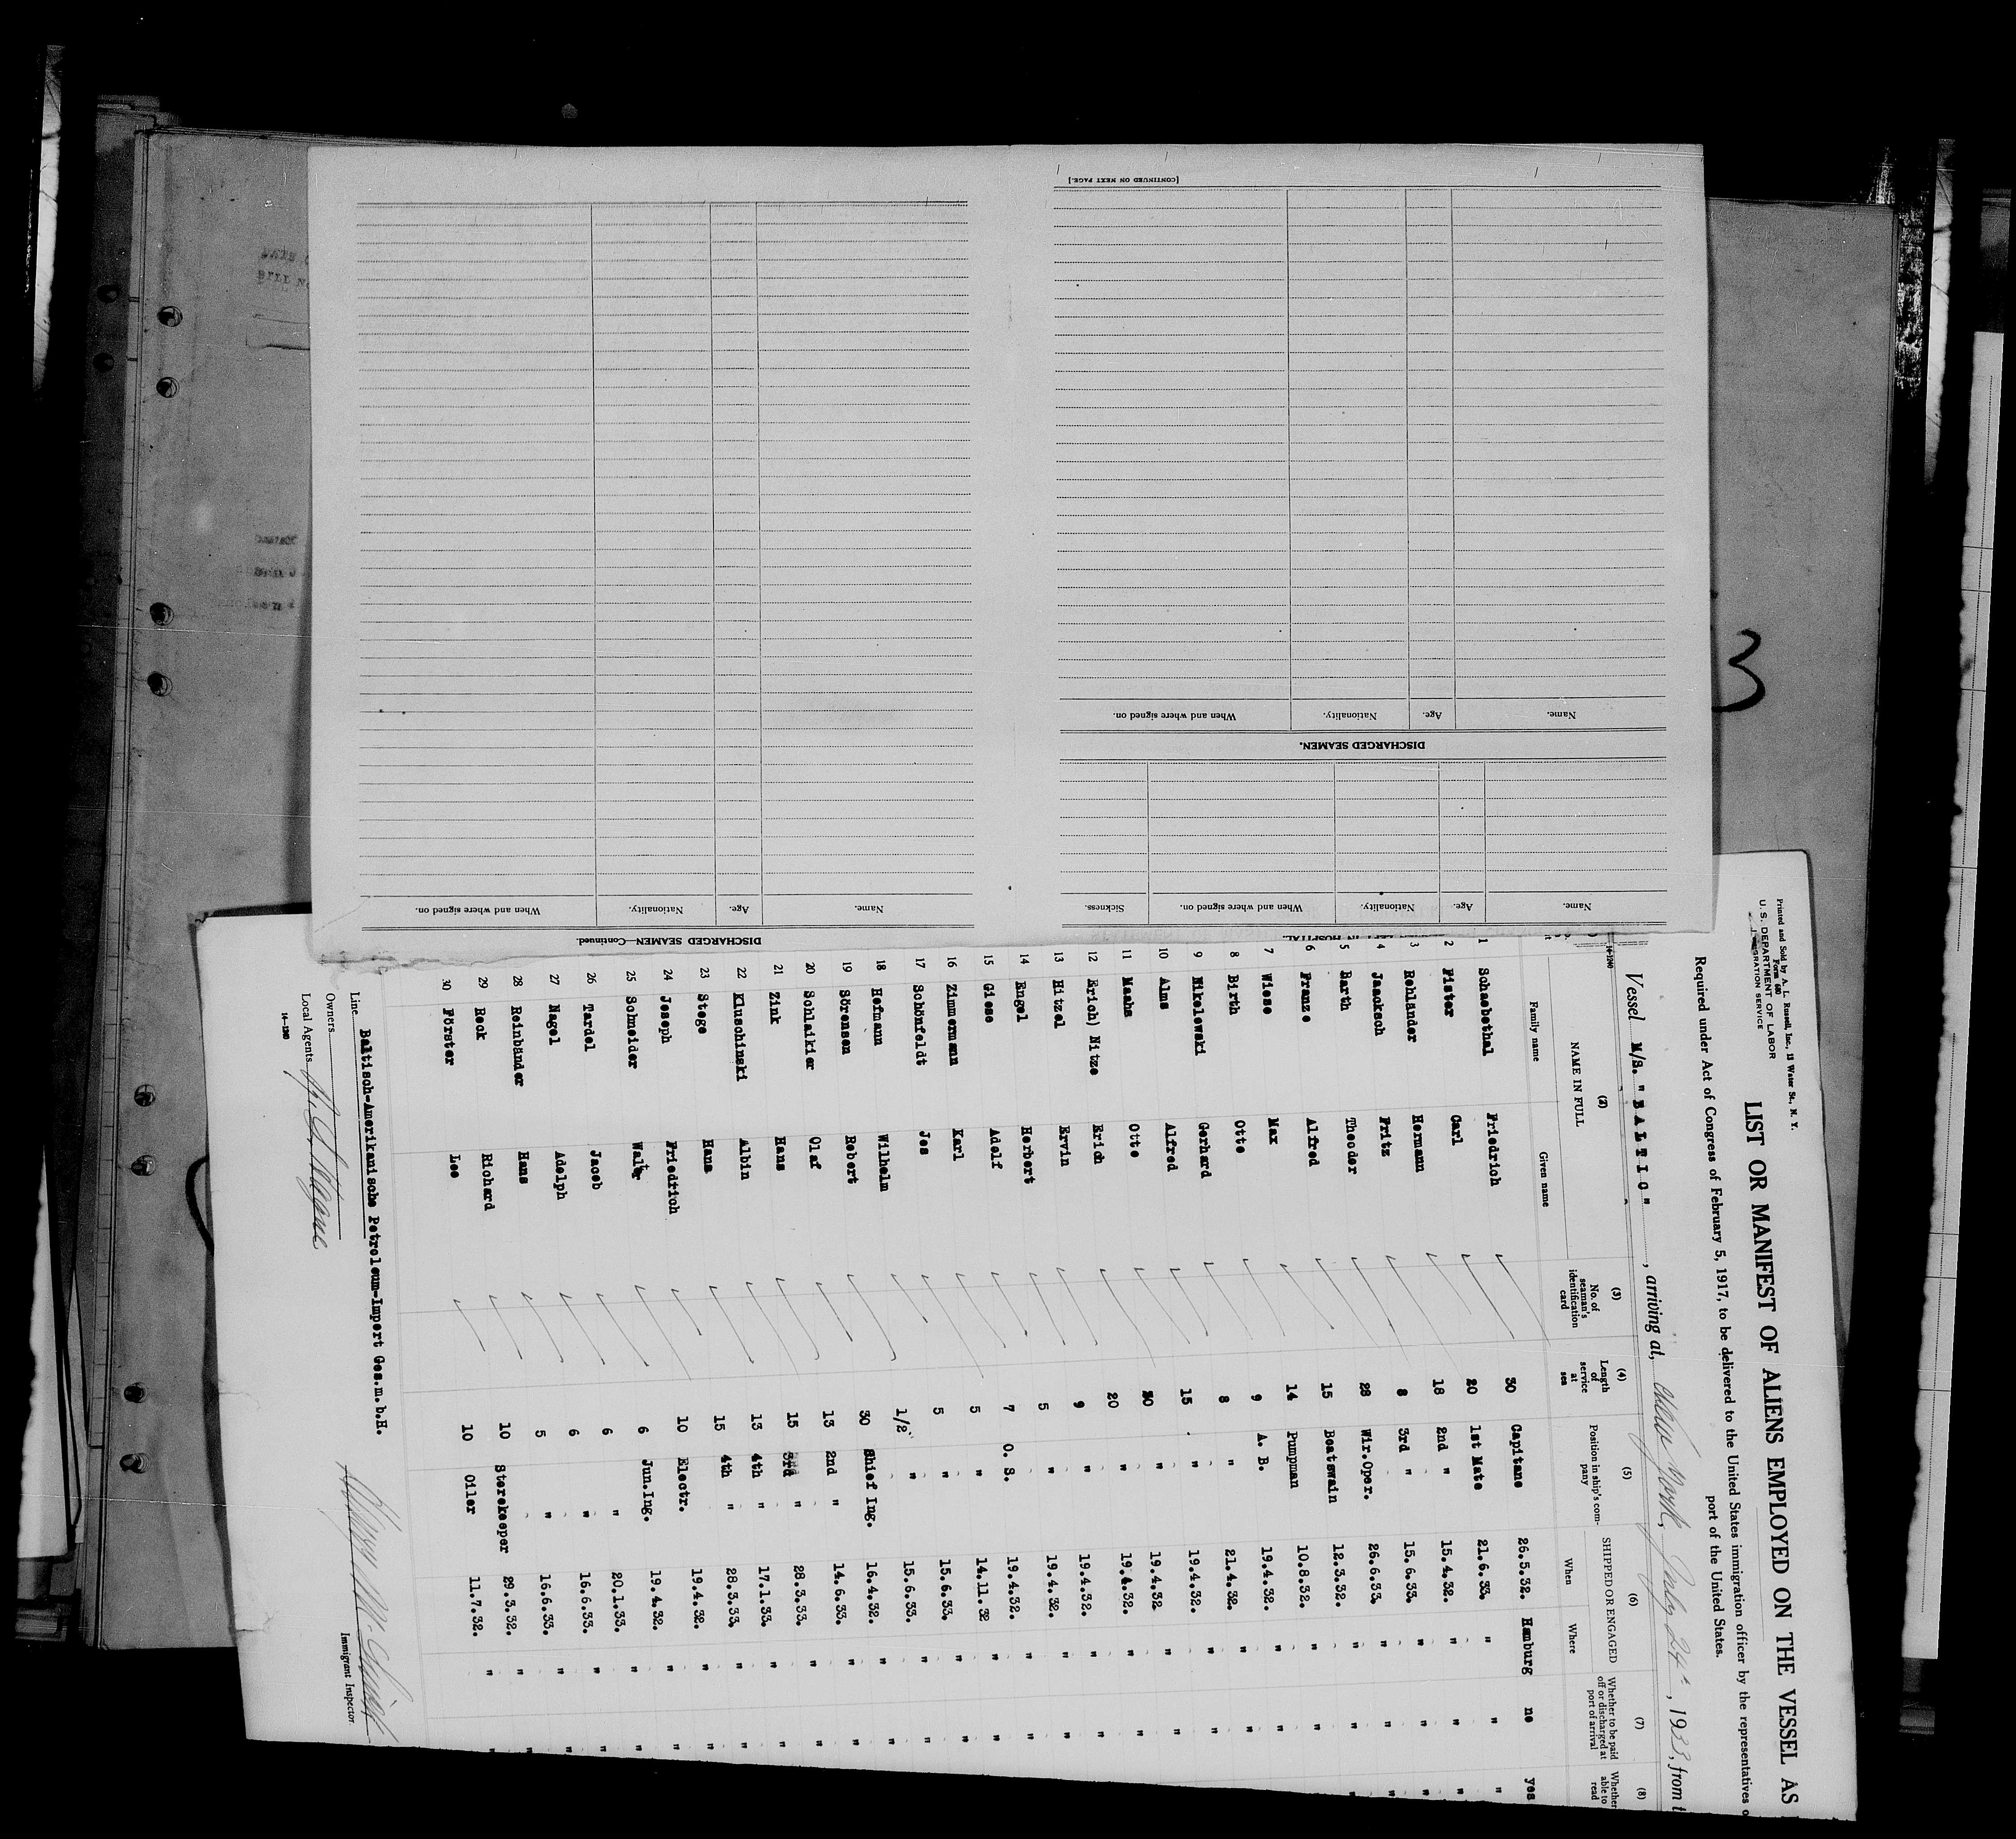 [CONTINUED ON NEXT PAGE.]
Name. Age. Nationality. When and where signed on.
DISCHARGED SEAMEN.
Name. Age. Nationality. When and where signed on. Sickness.
DISCHARGED SEAMEN—Continued.
Name. Age. Nationality. When and where signed on.
Printed and Sold by A. L. Russell, Inc., 15 Water St., N. Y.
Form 680
U. S. DEPARTMENT OF LABOR
IMMIGRATION SERVICE
LIST OR MANIFEST OF ALIENS EMPLOYED ON THE VESSEL AS
Required under Act of Congress of February 5, 1917, to be delivered to the United States immigration officer by the representatives o
port of the United States.
Vessel M/S. "BALTIC", arriving at, New York, July 24th, 1933, from t
14-1240
(2) (3) (4) (5) (6) (7) (8)
NAME IN FULL
Family name Given name
No. of seaman's identification card
Length of service at sea
Position in ship's company
SHIPPED OR ENGAGED
When Where
Whether to be paid off or discharged at port of arrival
Whether able to read
1 Schaebethal Friedrich 30 Capitane 26.5.32. Hamburg no yes
2 Pister Carl 20 1st Mate 21.6.33. " " "
3 Rehländer Hermann 18 2nd " 15.4.32. " " "
4 Jaacksch Fritz 8 3rd " 15.6.33. " " "
5 Barth Theodor 28 Wir.Oper. 26.6.33. " " "
6 Franze Alfred 15 Boatswain 12.3.32. " " "
7 Wiese Max 14 Pumpman 10.8.32. " "
8 Birth Otto 9 A. B. 19.4.32. " "
9 Nikolowski Gerhard 8 " 21.4.32. " "
10 Alms Alfred 15 " 19.4.32. " "
11 Maahs Otto 20 " 19.4.32 " "
12 Erich) Nitze Erich 20 " 19.4.32. " "
13 Hitzel Ervin 9 " 19.4.32. " "
14 Engel Herbert 5 " 19.4.32. " "
15 Giese Adolf 7 O. S. 19.4.32. " "
16 Zimmermann Karl 5 " 14.11.32 " "
17 Schönfeldt Jes 5 " 15.6.33. " "
18 Hofmann Wilhelm 1/2 " 15.6.33. " "
19 Sörensen Robert 30 Shief Ing. 16.4.32. " "
20 Schlaikier Olaf 13 2nd " 14.6.33. " "
21 Zink Hans 15 3rd " 28.3.33. " "
22 Kluschinski Albin 13 4th " 17.1.33. " "
23 Stege Hans 15 4th " 28.3.33. " "
24 Joseph Friedrich 10 Electr. 19.4.32. " "
25 Schneider Walter 6 Jun.Ing. 19.4.32. " "
26 Tardel Jacob 6 " 20.1.33. " "
27 Nagel Adolph 6 " 16.6.33. " "
28 Reinbänder Hans 5 " 16.6.33. " "
29 Rock Richard 10 Storekeeper 29.3.32. " "
30 Förster Leo 10 Oiler 11.7.32. " "
Line Baltisch-Amerikanische Petroleum-Import Ges.m.b.H.
Owners
Local Agents
Immigrant Inspector.
14-1240